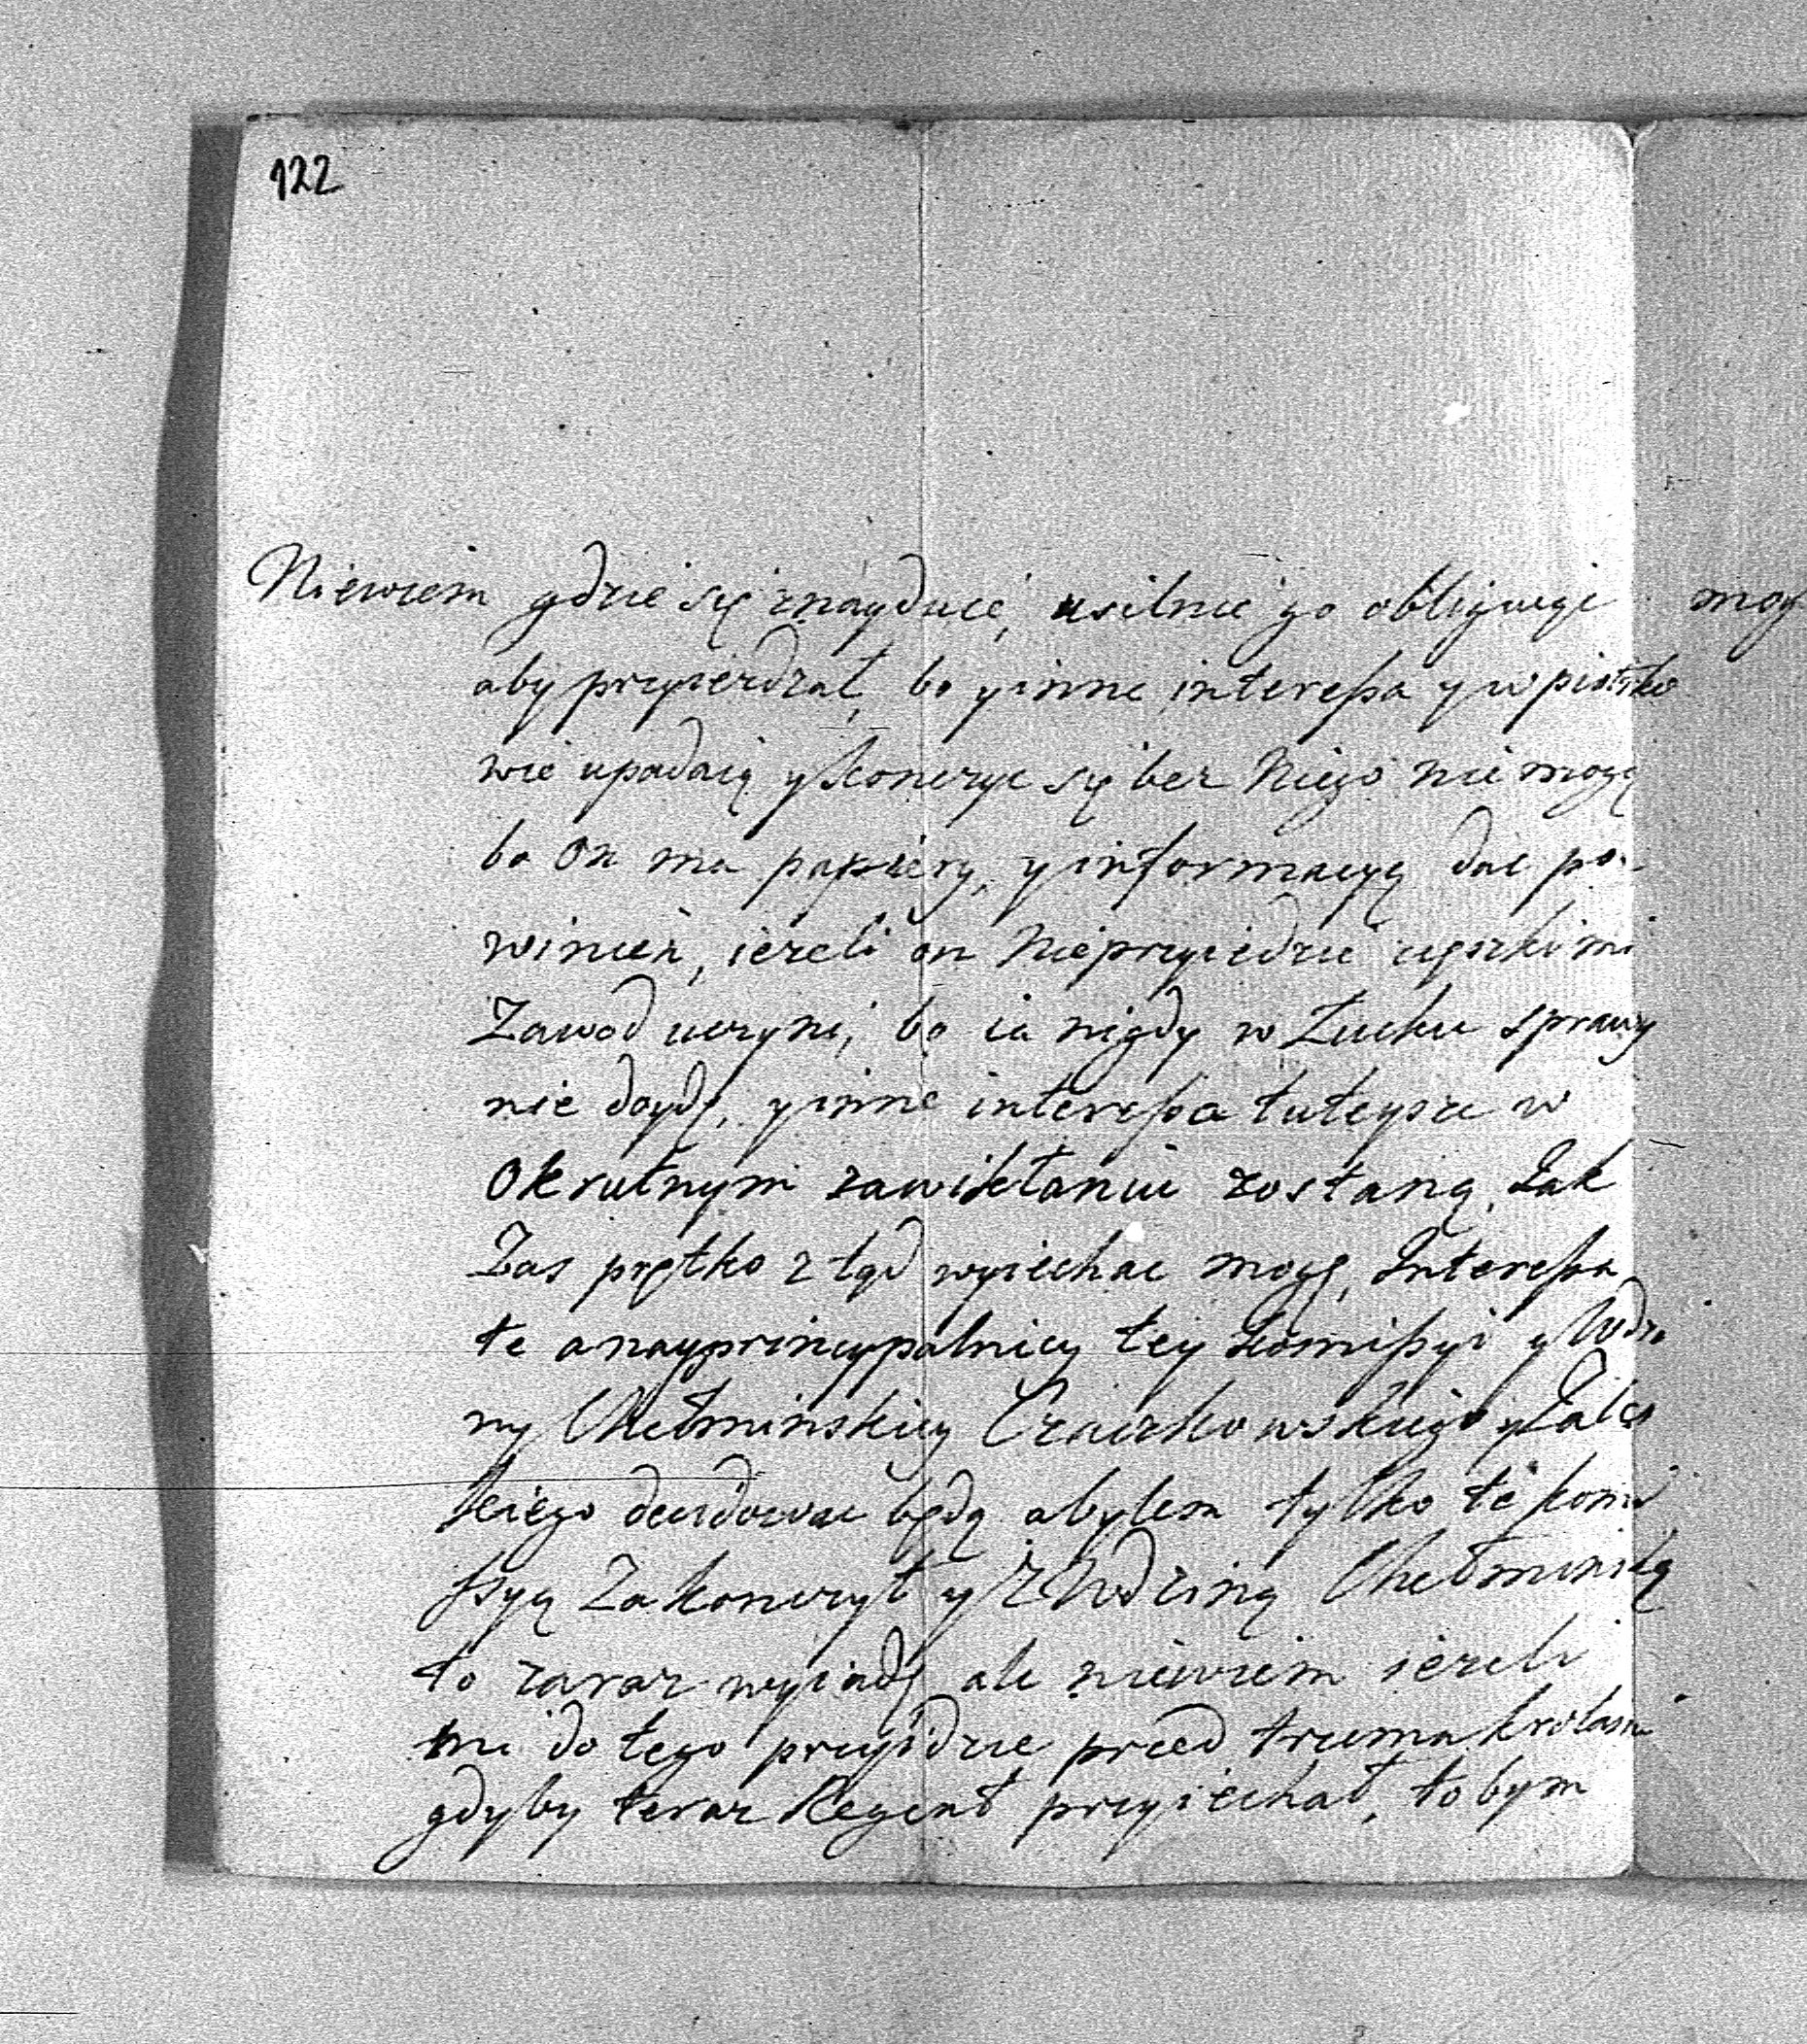 122
Niewiem gdzie się znayduie, usilnie go obliguię
aby przyieżdzał, bo y inne interessa y w piotrko
wie upadaią y konczyc się bez Niego nie mogą
bo On ma papiery, y informacyą dac po-
winien, ieżeli on Nieprzyiedzie cięszki mi
Zawod uczyni, bo ia nigdy w Łucku sprawy
nie doydę, y inne interessa tuteysze w
Okrutnym zawikłaniu zostaną. Jak
Zas prętko z tąd wyiechac mogę, Interessa
te a nayprincypalniey tey komissyi y Wdzi
ny Chełminskiey Czaczkowskiego y Zales
kiego decidowac będą abylem tylko tę komi
ssyą Zakonczył y Z Wdziną Chełminską
to zaraz wyiadę ale niewiem ieżeli
mi do tego przyidzie przed trzema krolami
gdyby teraz Regent przyiechał, to bym
mog